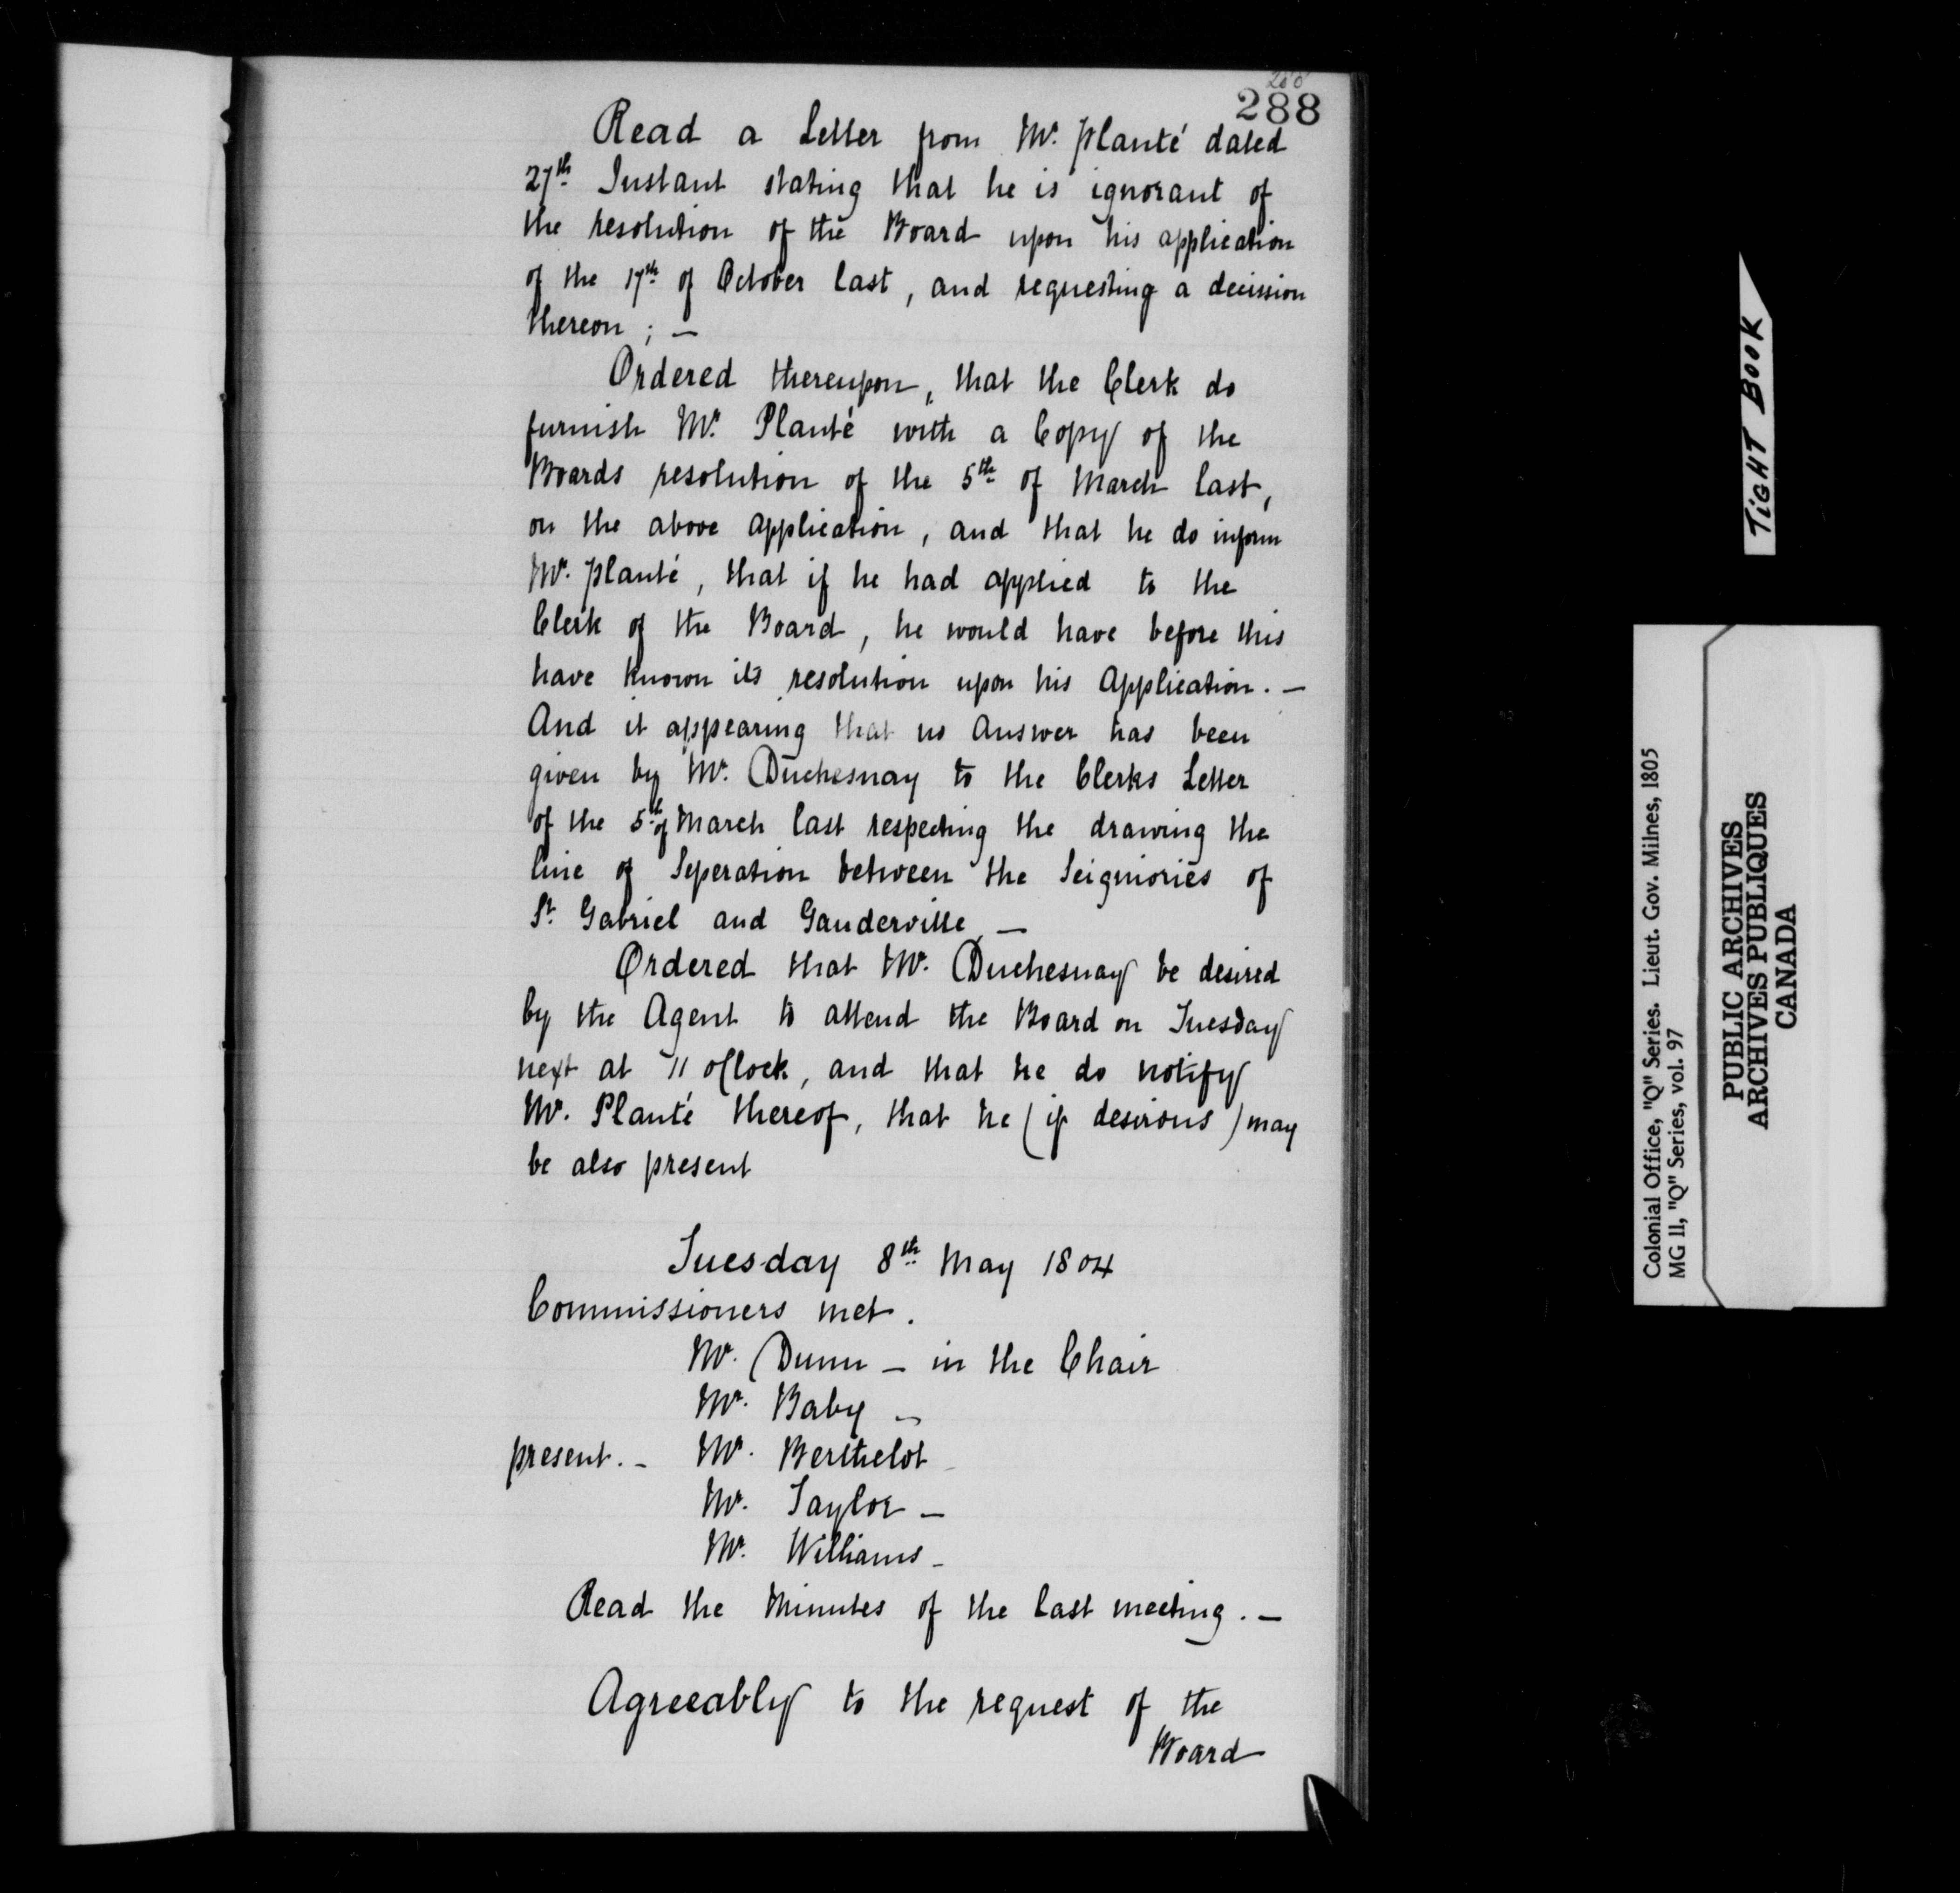 288
Read a Letter from Mr. Planté dated
27th Instant stating that he is ignorant of
the resolution of the Board upon his application
of the 17th of October last, and requesting a decision
thereon ; —
Ordered thereupon, that the Clerk do
furnish Mr. Planté with a Copy of the
Boards resolution of the 5th of March last,
on the above application, and that he do inform
Mr. Planté, that if he had applied to the
Clerk of the Board, he would have before this
have known its resolution upon his Application. —
And it appearing that no Answer has been
given by Mr. Duchesnay to the Clerks Letter
of the 5th of March last respecting the drawing the
line of Seperation between the Seigniories of
St. Gabriel and Gauderville —
Ordered that Mr. Duchesnay be desired
by the Agent to attend the Board on Tuesday
next at 11 oClock, and that he do notify
Mr. Planté thereof, that he (if desirous) may
be also present
Tuesday 8th May 1804
Commissioners met.
Mr. Dunn — in the Chair
Mr. Baby —
present. — Mr. Berthelot
Mr. Taylor —
Mr. Williams —
Read the Minutes of the last meeting. —
Agreeably to the request of the
Board
TIGHT BOOK
Colonial Office, "Q" Series. Lieut. Gov. Milnes, 1805
MG 11, "Q" Series, vol. 97
PUBLIC ARCHIVES
ARCHIVES PUBLIQUES
CANADA